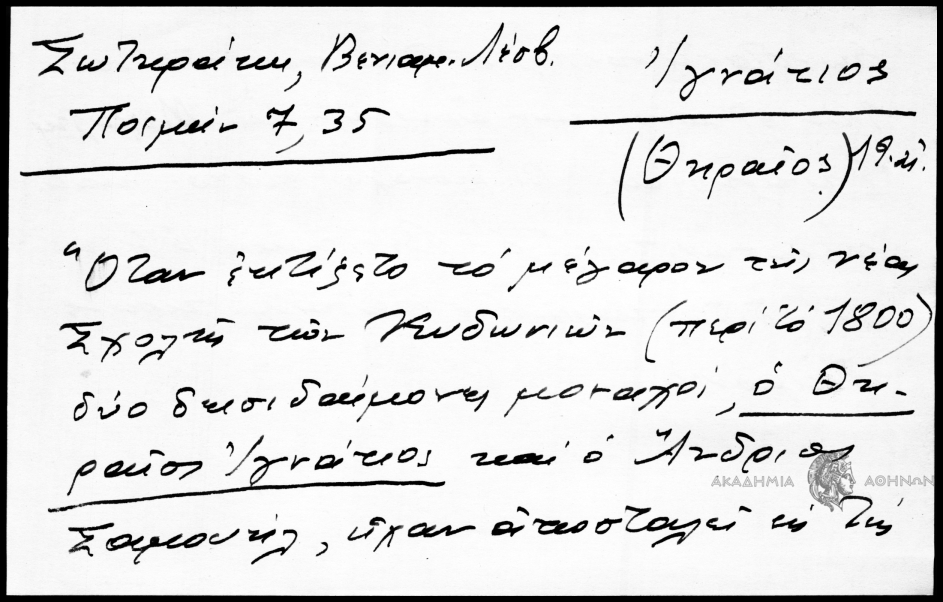 Σωτηράκη, Βενιαμ. Λέσβ.
Ποιμήν 7, 35
Ἰγνάτιος
(Θηραῖος) 19. αἰ.
"Ὅταν ἐκτίζετο τό μέγαρον τῆς νέας
Σχολῆς τῶν Κυδωνιῶν (περί τό 1800)
δύο δεισιδαίμονες μοναχοί, ὁ Θη-
ραῖος Ἰγνάτιος καί ὁ Ἄνδριος
Σαμουήλ, εἶχαν ἀποσταλεῖ εἰς τάς
ΑΚΑΔΗΜΙΑ ΑΘΗΝΩΝ